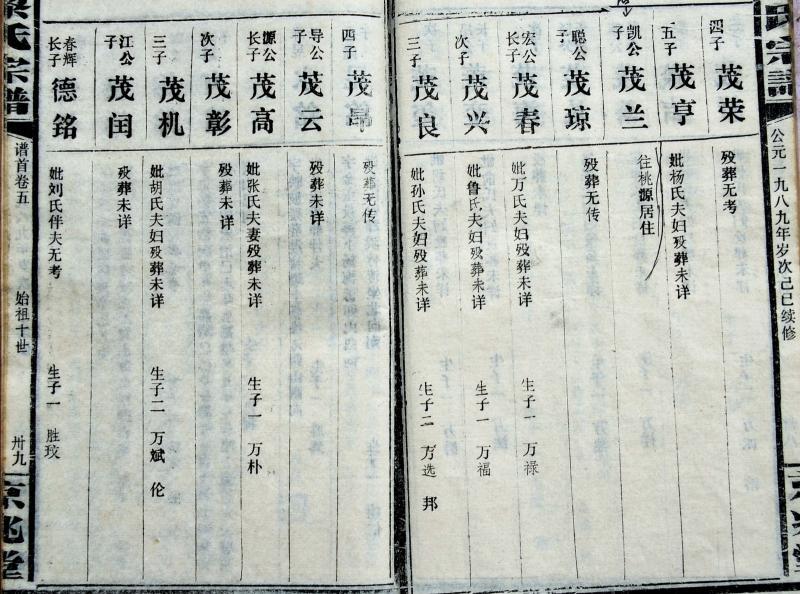 氏宗譜 公元一九八九年岁次己巳续修 兆堂
四子 茂荣 殁葬无考
五子 茂亨 妣杨氏夫妇殁葬未详
凯公子 茂兰 往桃源居住
聪公子 茂琼 殁葬无传
宏公长子 茂春 妣万氏夫妇殁葬未详 生子一 万禄
次子 茂兴 妣鲁氏夫妇殁葬未详 生子一 万福
三子 茂良 妣孙氏夫妇殁葬未详 生子二 万选 邦
四子 茂 殁葬无传
导公子 茂云 殁葬未详
源公长子 茂高 妣张氏夫妻殁葬未详 生子一 万朴
次子 茂彰 殁葬未详
三子 茂机 妣胡氏夫妇殁葬未详 生子二 万斌 伦
江公子 茂闰 殁葬未详
春辉长子 德铭 妣刘氏伴夫无考 生子一 胜玟
氏宗譜 谱首卷五 始祖十世 卅九 京兆堂